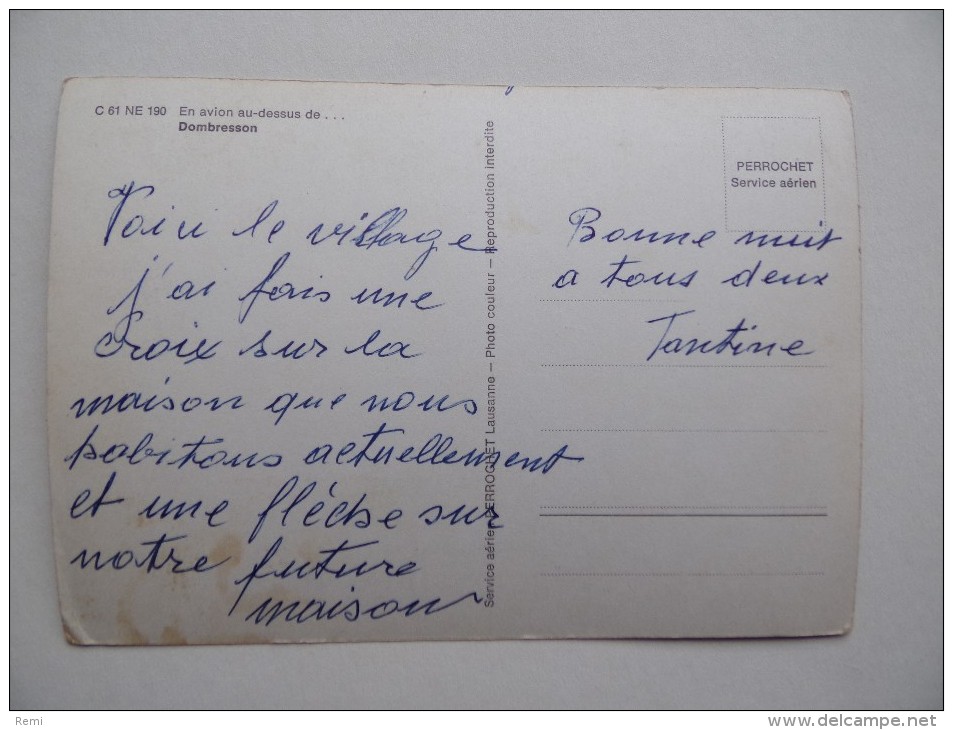 C 61 NE 190 En avion au-dessus de . . .
Dombresson
Voici le village
j'ai fais une
croix sur la
maison que nous
habitons actuellement
et une flèche sur
notre future
maison
Service aérien PERROCHET Lausanne — Photo couleur — Reproduction interdite
PERROCHET
Service aérien
Bonne nuit
a tous deux
Tantine
Remi
http://www.delcampe.net